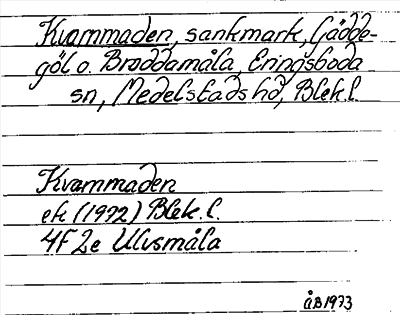 Kvammaden, sankmark, Gädde-
göl o. Broddamåla, Eringsboda
sn, Medelstads hd, Blek. l.
Kvammaden
ek (1972) Blek. l.
4F 2e Ulvsmåla
åB 1973